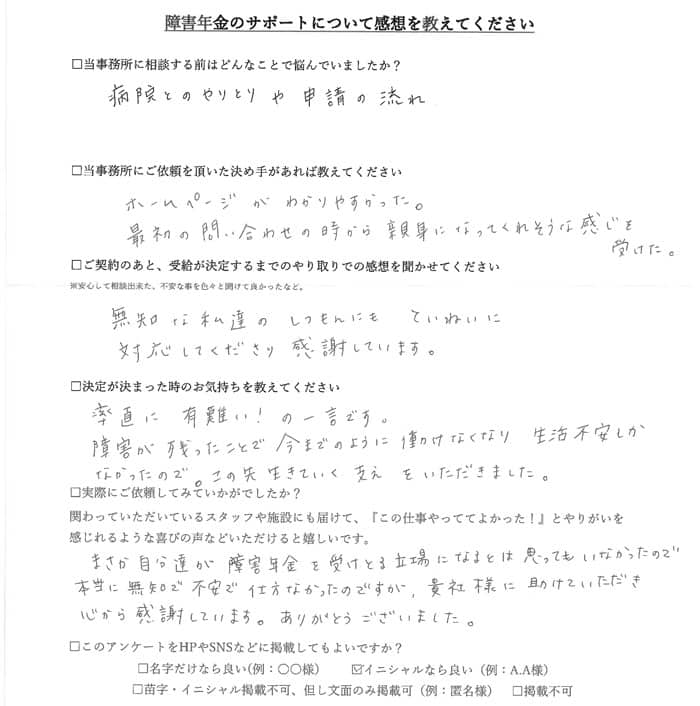 障害年金のサポートについて感想を教えてください
□当事務所に相談する前はどんなことで悩んでいましたか？
病院とのやりとりや申請の流れ
□当事務所にご依頼を頂いた決め手があれば教えてください
ホームページがわかりやすかった。
最初の問い合わせの時から親身になってくれそうな感じを
受けた。
□ご契約のあと、受給が決定するまでのやり取りでの感想を聞かせてください
※安心して相談出来た、不安な事を色々と聞けて良かったなど。
無知な私達のしつもんにもていねいに
対応してくださり感謝しています。
□決定が決まった時のお気持ちを教えてください
率直に有難い！の一言です。
障害が残ったことで今までのように働けなくなり生活不安しか
なかったので。この先生きていく支えをいただきました。
□実際にご依頼してみていかがでしたか？
関わっていただいているスタッフや施設にも届けて、『この仕事やっててよかった！』とやりがいを
感じれるような喜びの声などいただけると嬉しいです。
まさか自分達が障害年金を受けとる立場になるとは思ってもいなかったので
本当に無知で不安で仕方なかったのですが、貴社様に助けていただき
心から感謝しています。ありがとうございました。
□このアンケートをHPやSNSなどに掲載してもよいですか？
□名字だけなら良い(例：〇〇様） ☑イニシャルなら良い（例：A.A様）
□苗字・イニシャル掲載不可、但し文面のみ掲載可（例：匿名様） □掲載不可